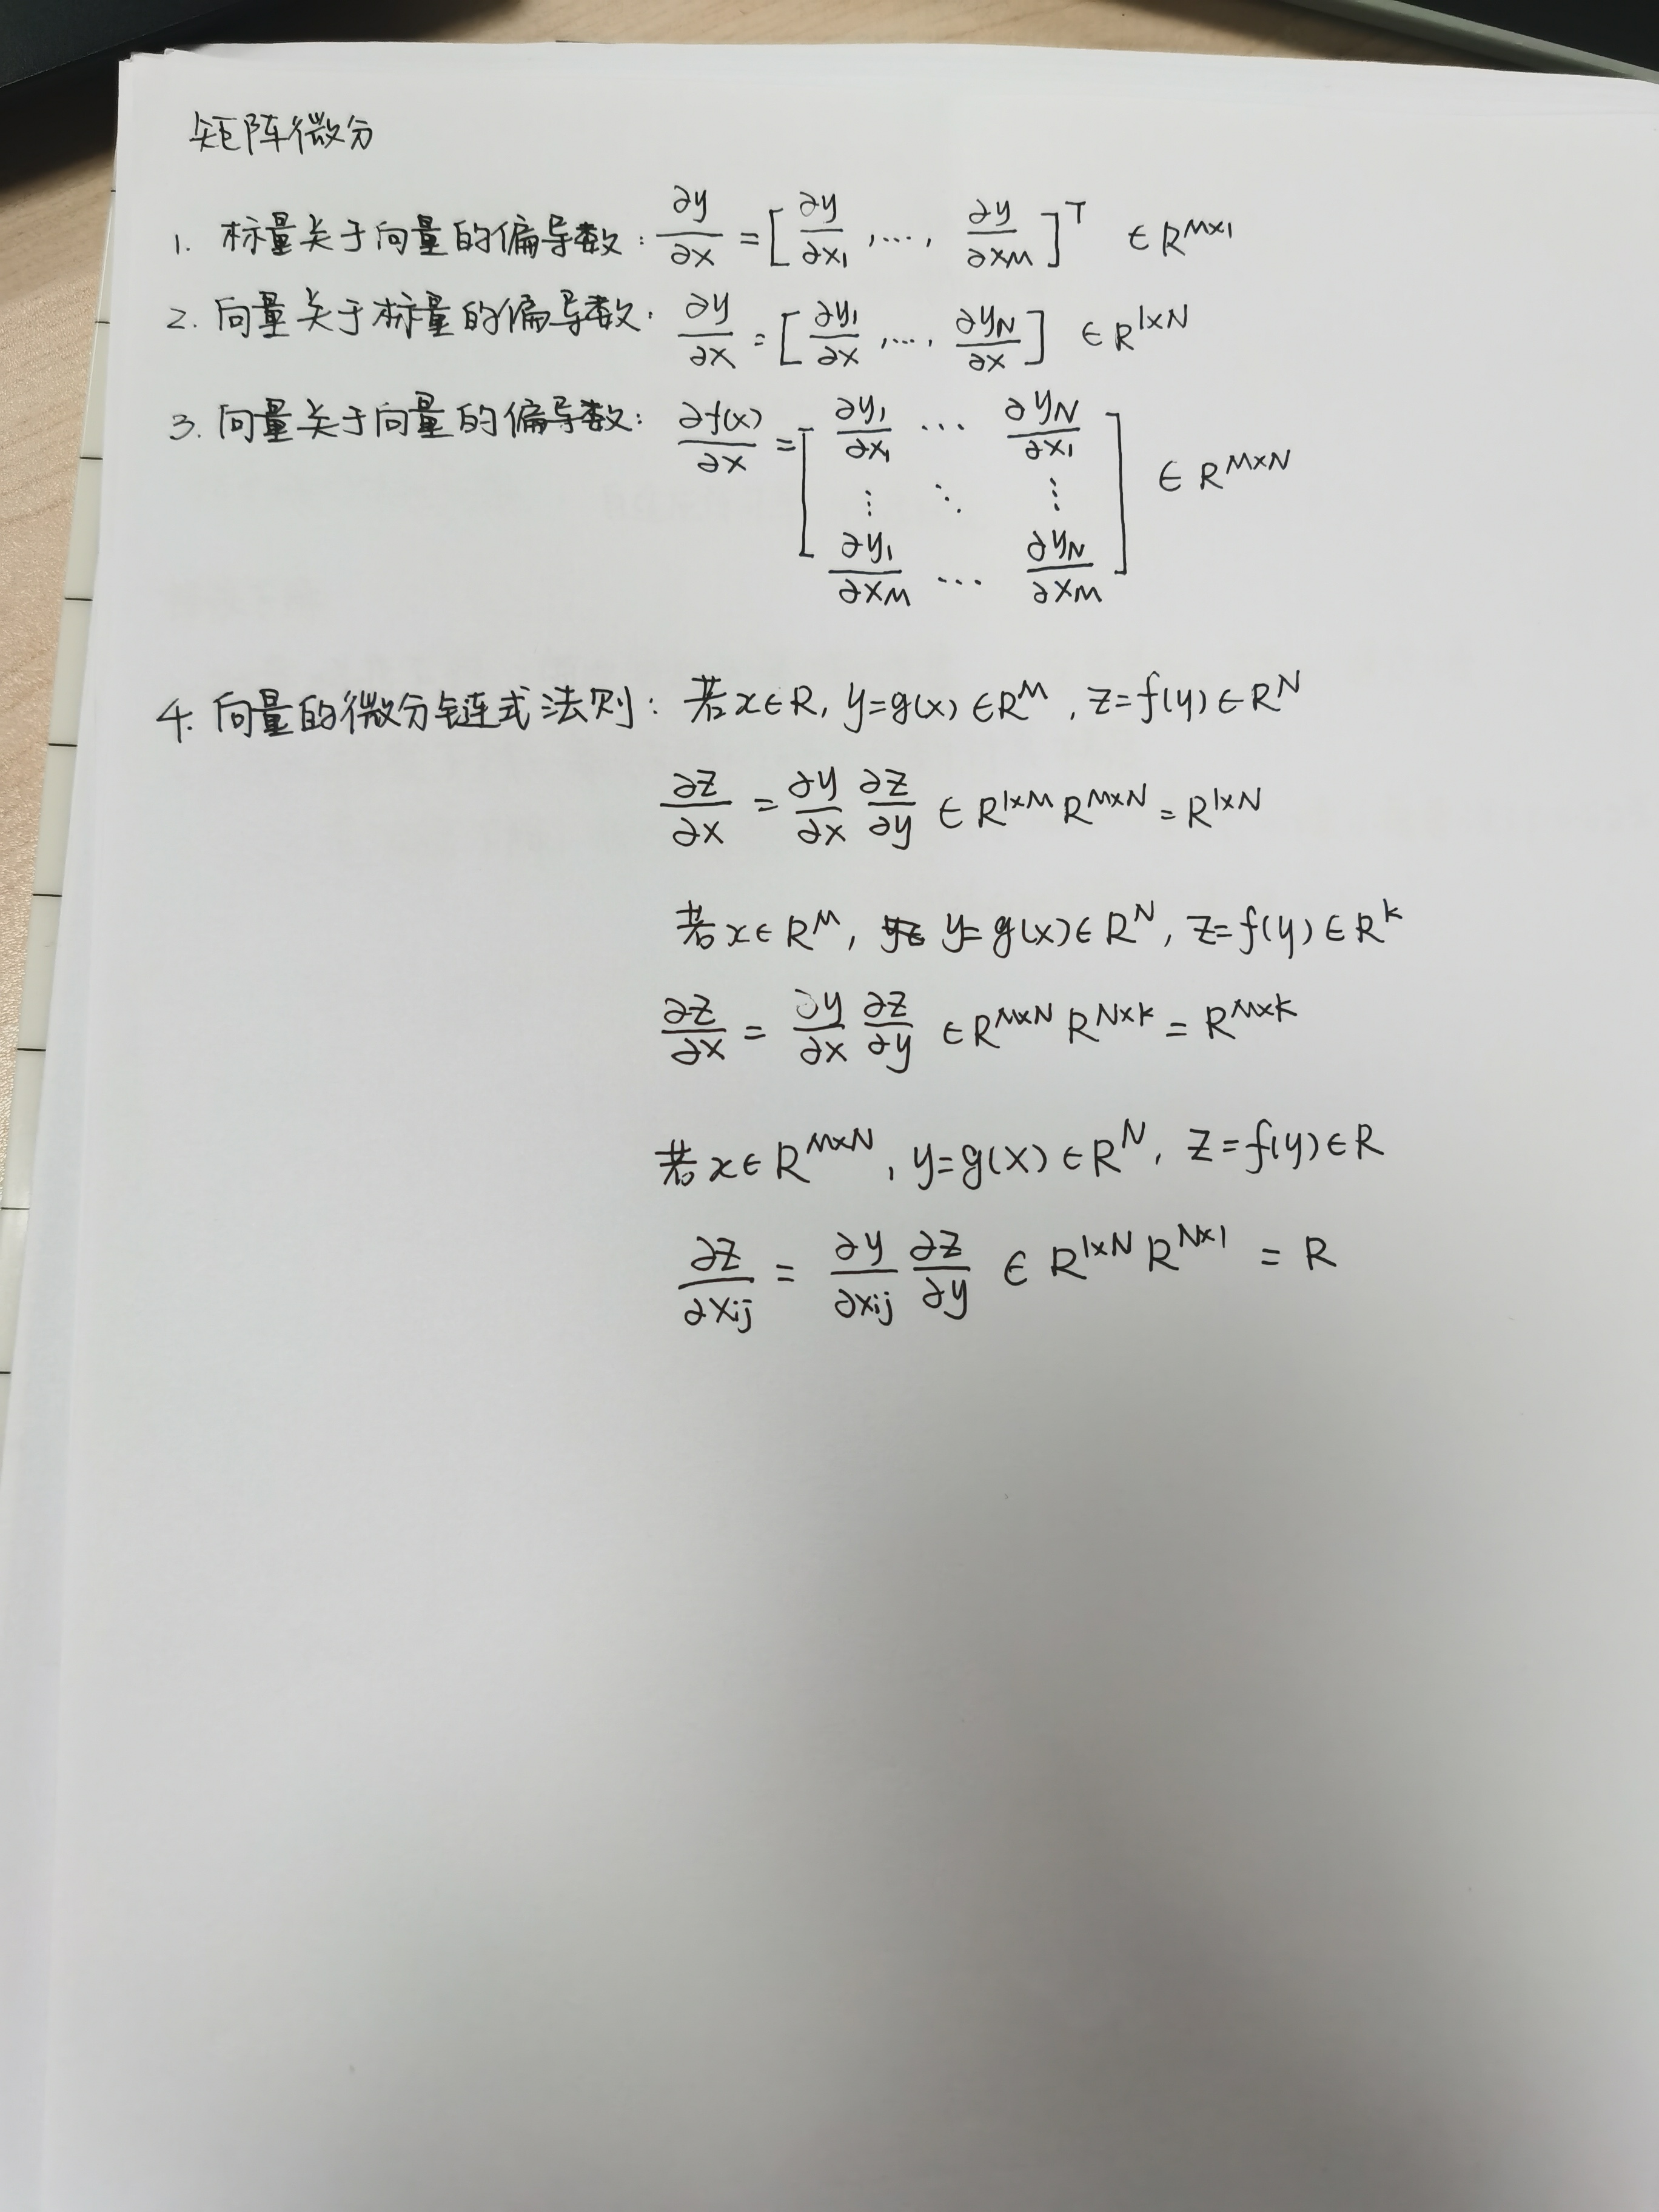 矩阵微分
1. 标量关于向量的偏导数: ∂y/∂x = [∂y/∂x₁, ..., ∂y/∂x_M]^T ∈ R^{M×1}
2. 向量关于标量的偏导数. ∂y/∂x = [∂y₁/∂x, ..., ∂y_N/∂x] ∈ R^{1×N}
3. 向量关于向量的偏导数: ∂f(x)/∂x = [∂y₁/∂x₁ ... ∂y_N/∂x₁
⋮ ⋱ ⋮
∂y₁/∂x_M ... ∂y_N/∂x_M] ∈ R^{M×N}
4. 向量的微分链式法则: 若x∈R, y=g(x)∈R^M, z=f(y)∈R^N
∂z/∂x = ∂y/∂x ∂z/∂y ∈ R^{1×M} R^{M×N} = R^{1×N}
若x∈R^M, y=g(x)∈R^N, z=f(y)∈R^k
∂z/∂x = ∂y/∂x ∂z/∂y ∈ R^{M×N} R^{N×k} = R^{M×k}
若x∈R^{M×N}, y=g(x)∈R^N, z=f(y)∈R
∂z/∂x_{ij} = ∂y/∂x_{ij} ∂z/∂y ∈ R^{1×N} R^{N×1} = R